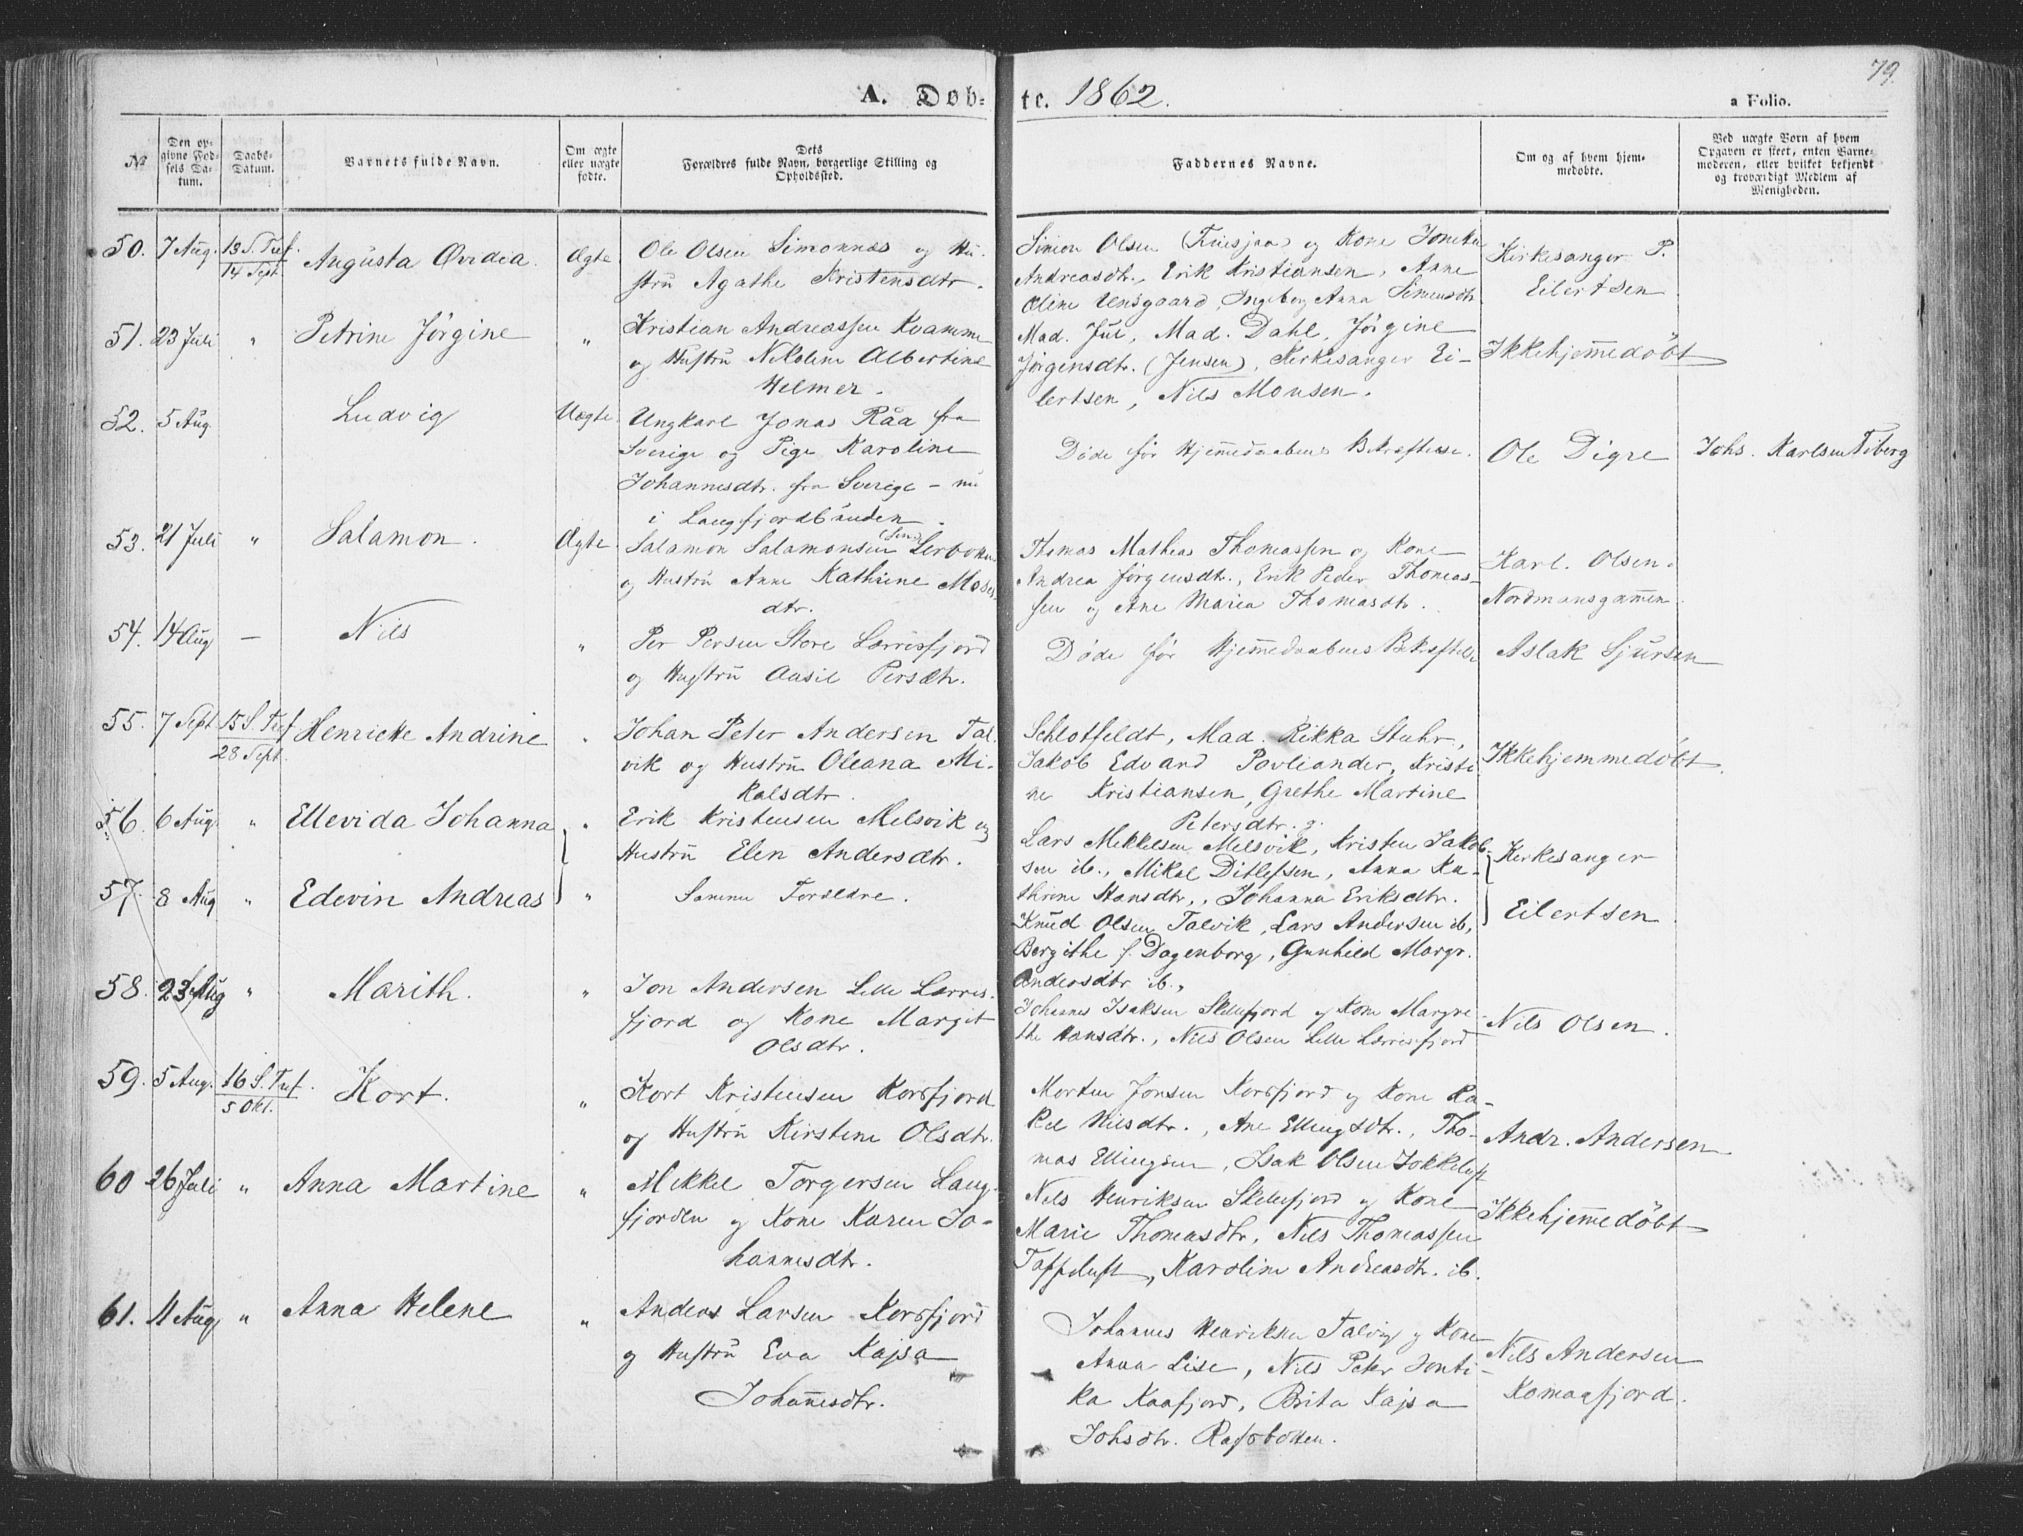 79.
A. Døb- te. 1862. a Folio.
№
Den op-
givne Fød-
sels Da-
tum.
Daabs-
Datum.
Barnets fulde Navn.
Om ægte
eller uægte
fødte.
Dets
Forældres fulde Navn, borgerlige Stilling og
Opholdssted.
Faddernes Navne.
Om og af hvem hjem-
medøbte.
Ved uægte Børn af hvem
Opgaven er skeet, enten Barne-
moderen, eller hvilket bekjendt
og troværdigt Medlem af
Menigheden.
50. 7 Aug. 13 S. Tref.
14 Sept.
Augusta Ovidea. Ægte
Ole Olsen Simonnæs og Hu-
stru Agathe Kristensdtr.
Simon Olsen og Kone
Andreasdtr., Erik Kristiansen, Anne
Oline Unsgaard, Ingeborg Anna Simonsdtr.
Kirkesanger P.
Eilertsen
51. 23 Juli " Petrine Jørgine "
Kristian Andreassen Kvamme
og Hustru Nikoline Albertine
Helmer.
Mad. Jul, Mad. Dahl, Jørgine
Jørgensdtr. (Jensen), Kirkesanger Ei-
lertsen, Nils Monsen.
Ikkehjemmedøbt
52. 5 Aug Ludvig Uægte
Ungkarl Jonas Råa fra
Sverige og Pige Karoline
Johannesdtr. fra Sverige – nu
i Langfjordbunden.
Døde før Hjemmedaabens Bekræftelse.
Ole Digre
Johs. Karlsen Tiberg
53. 21 Juli " Salamon. Ægte
Salamon Salamonsen
og Hustru Anne Kathrine Moses-
dtr.
Thomas Mathias Thomassen og Kone
Andrea Jørgensdtr., Erik Peder Thomas-
sen og Ane Maria Thomasdtr.
Karl. Olsen.
Nordmansgammen
54. 14 Aug – Nils "
Per Persen Store Lærrisfjord
og Hustru Persdtr.
Døde før Hjemmedaabens Bekræftelse
Aslak Sjursen
55. 7 Sept 15 S. Tref
28 Sept.
Henrikke Andrine "
Johan Peter Andersen Tal-
vik og Hustru Oleana Mi-
kalsdtr.
Schlotfeldt, Mad. Rikka Stuhr,
Jakob Edvard Povliander, Kristi-
ne Kristiansen, Grethe Martine
Petersdtr.
Ikkehjemmedøbt
56. 6 Aug. " Ellevida Johanna "
Erik Kristensen Melsvik og
Hustru Elen Andersdtr.
Lars Mekkelsen Melsvik, Kristen Jakob-
sen ib., Mikal Ditlefsen, Anna Ka-
thrine Hansdtr., Johanna Eriksdtr.
Kirkesanger
57. 8 Aug " Edevin Andreas "
Samme Forældre.
Knud Olsen Talvik, Lars Andersen ib,
Bergithe f. Dagenborg, Gunhild Margr.
Andersdtr ib.,
Eilertsen
58. 23 Aug " Marith. "
Jon Andersen Lille Lærris-
fjord og Kone Margit
Olsdtr.
Johannes Isaksen Skillefjord og Kone Margre-
the Hansdtr., Nils Olsen Lille Lærrisfjord
Nils Olsen.
59. 5 Aug. 16 S. Tref.
5 Okt.
Kort. "
Kort Kristensen Korsfjord
og Hustru Kirstine Olsdtr.
Morten Jonsen Korsfjord og Kone Ra-
kel Nilsdtr., Ane Ellingsdtr., Tho-
mas Ellingsen, Isak Olsen
Andr. Andersen
60 26 Juli " Anna Martine "
Mikkel Torgersen Lang-
fjorden og Kone Karen Jo-
hannesdtr.
Nils Henriksen Skillefjord og Kone
Marie Thomasdtr, Nils Thomassen
Karoline Andreasdtr. ib.
Ikkehjemmedøbt
61. 11 Aug " Anna Helene "
Anders Larsen Korsfjord
og Hustru Eva Kajsa
Johannesdtr.
Johannes Henriksen Talvig og Kone
Anna Lise, Nils Peter
Kaafjord, Brita Kajsa
Johsdtr. Rafsbotten.
Nils Andersen
Komagfjord.